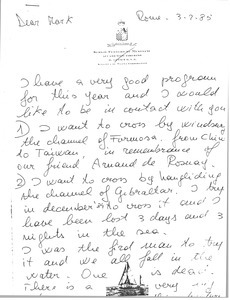 Dear Mark
Rome. 3-7-85
I have a very good program
for this year and I would
like to be in contact with you
1) I want to cross by windsurf
the channel of Formosa, from China
to Taiwan in remembrance of
our friend Arnaud de Rosnay.
2) I want to cross by hangliding
the channel of Gibraltar. I try
in december to cross it and I
have been lost 3 days and 3
nights in the sea.
I was the first man to try
it and we all fall in the
water. One is dead.
There is a very